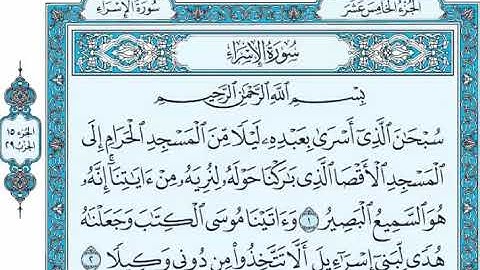 الجزء الخامس عشر
سورة الإسراء
سُورَةُ الإِسْرَاءِ
بِسْمِ اللَّهِ الرَّحْمَٰنِ الرَّحِيمِ
سُبْحَٰنَ الَّذِىٓ أَسْرَىٰ بِعَبْدِهِۦ لَيْلًا مِّنَ الْمَسْجِدِ الْحَرَامِ إِلَى
الْمَسْجِدِ الْأَقْصَا الَّذِى بَٰرَكْنَا حَوْلَهُۥ لِنُرِيَهُۥ مِنْ ءَايَٰتِنَآ ۚ إِنَّهُۥ
هُوَ السَّمِيعُ الْبَصِيرُ ١ وَءَاتَيْنَا مُوسَى الْكِتَٰبَ وَجَعَلْنَٰهُ
هُدًى لِّبَنِىٓ إِسْرَٰٓءِيلَ أَلَّا تَتَّخِذُوا۟ مِن دُونِى وَكِيلًا ٢
الجزء ١٥
الحزب ٢٩